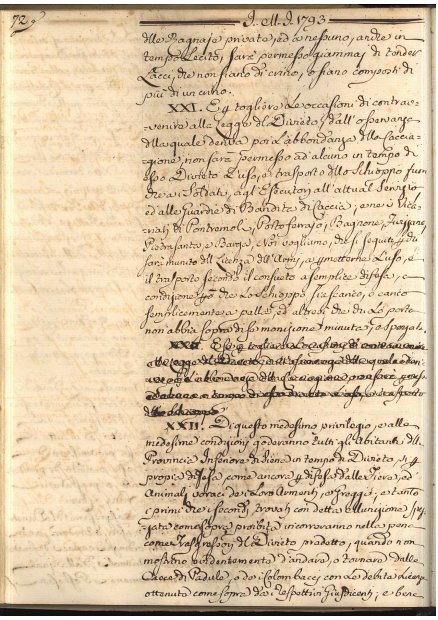 72
J. M. J. 1793
delle Bagnaje private, ed a nessuno, anche in
tempo Lecito, sarà permesso giammai di tender
Lacci, che non siano di crino, o siano composti di
più di un crino.
XXI. E per togliere Le occasioni di contrav-
-venire alla Legge del Divieto, dall'osservanza
della quale deriva poi L'abbondanza della Caccia-
-gione, non sarà permesso ad alcuno in tempo di
esso Divieto L'uso, e trasporto dello Schioppo fuori
che ai Soldati, agl'Esecutori all'attual Servizio
ed alle Guardie di Bandita di Caccia; e ne i Vica-
riati di Pontremoli, Portoferrajo, Bagnone, Fivizzano,
Pietrasanta e Barga, Noi vogliamo, che si seguiti per chi
sarà munito di Licenza d'Armi, a permetterne L'uso, e
il trasporto secondo il consueto a semplice difesa, e
condizione però che Lo Schioppo sia scarico, o carico
semplicemente a palla, ed altresì che chi Lo porta
non abbia sopra di se monizione minuta, o spezzata.
XXII. Di questo medesimo privilegio, e alle
medesime condizioni goderanno tutti gli Abitanti della
Provincia Inferiore di Siena in tempo di Divieto, sì per
propria difesa, come ancora per difesa dalle Fiere, ed
Animali voraci de i Loro Armenti, e Greggi; e tanto
i primi che i secondi, trovati con detta Munizione spez-
zata come sopra proibita incorreranno nella pena
come Trasgressori del Divieto predetto, quando non
mostrino evidentemente d'andare, o tornare dalle
Cacce di Padule, o de i Colombacci con La debita Licenza
ottenuta come sopra da i respettivi Giusdicenti; e bene